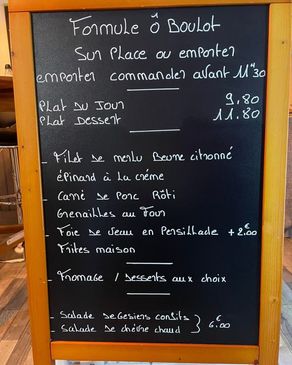 Formule Ô Boulot
Sur Place ou emporter
emporter commander avant 11"30
Plat Du Jour 9,80
Plat Dessert 11.80
- Filet de merlu Beurre citronné
épinard à la crème
- Carré de Porc Rôti
Grenailles au Four
- Foie de Veau en Persillade + 2€00
Frites maison
- Fromage / Desserts aux choix
- Salade de Gesiers confits
- Salade de chèvre chaud } 6€00